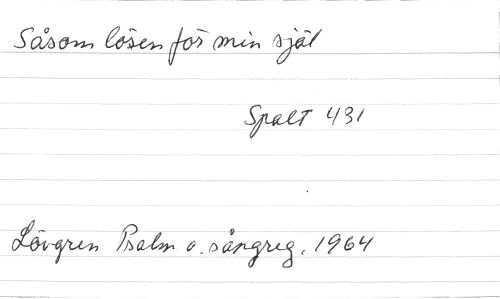 Såsom lösen för min själ
Spalt 431
Lövgren Psalm o. sångreg. 1964